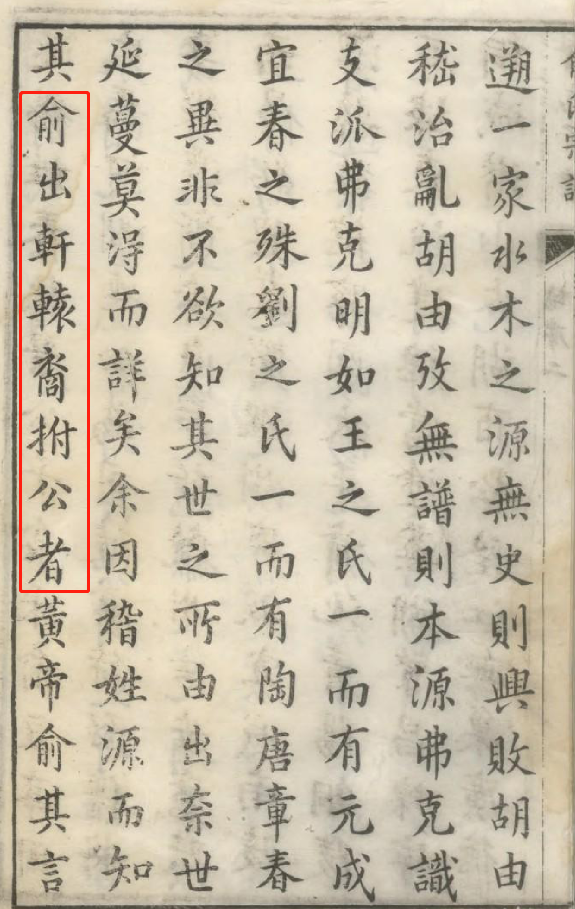 遡一家水木之源無史則興敗胡由
嵇治亂胡由攷無譜則本源弗克識
支派弗克明如王之氏一而有元成
宜春之殊劉之氏一而有陶唐章春
之異非不欲知其世之所由出奈世
延蔓莫淂而詳矣余因稽姓源而知
其俞出軒轅裔拊公者黃帝俞其言